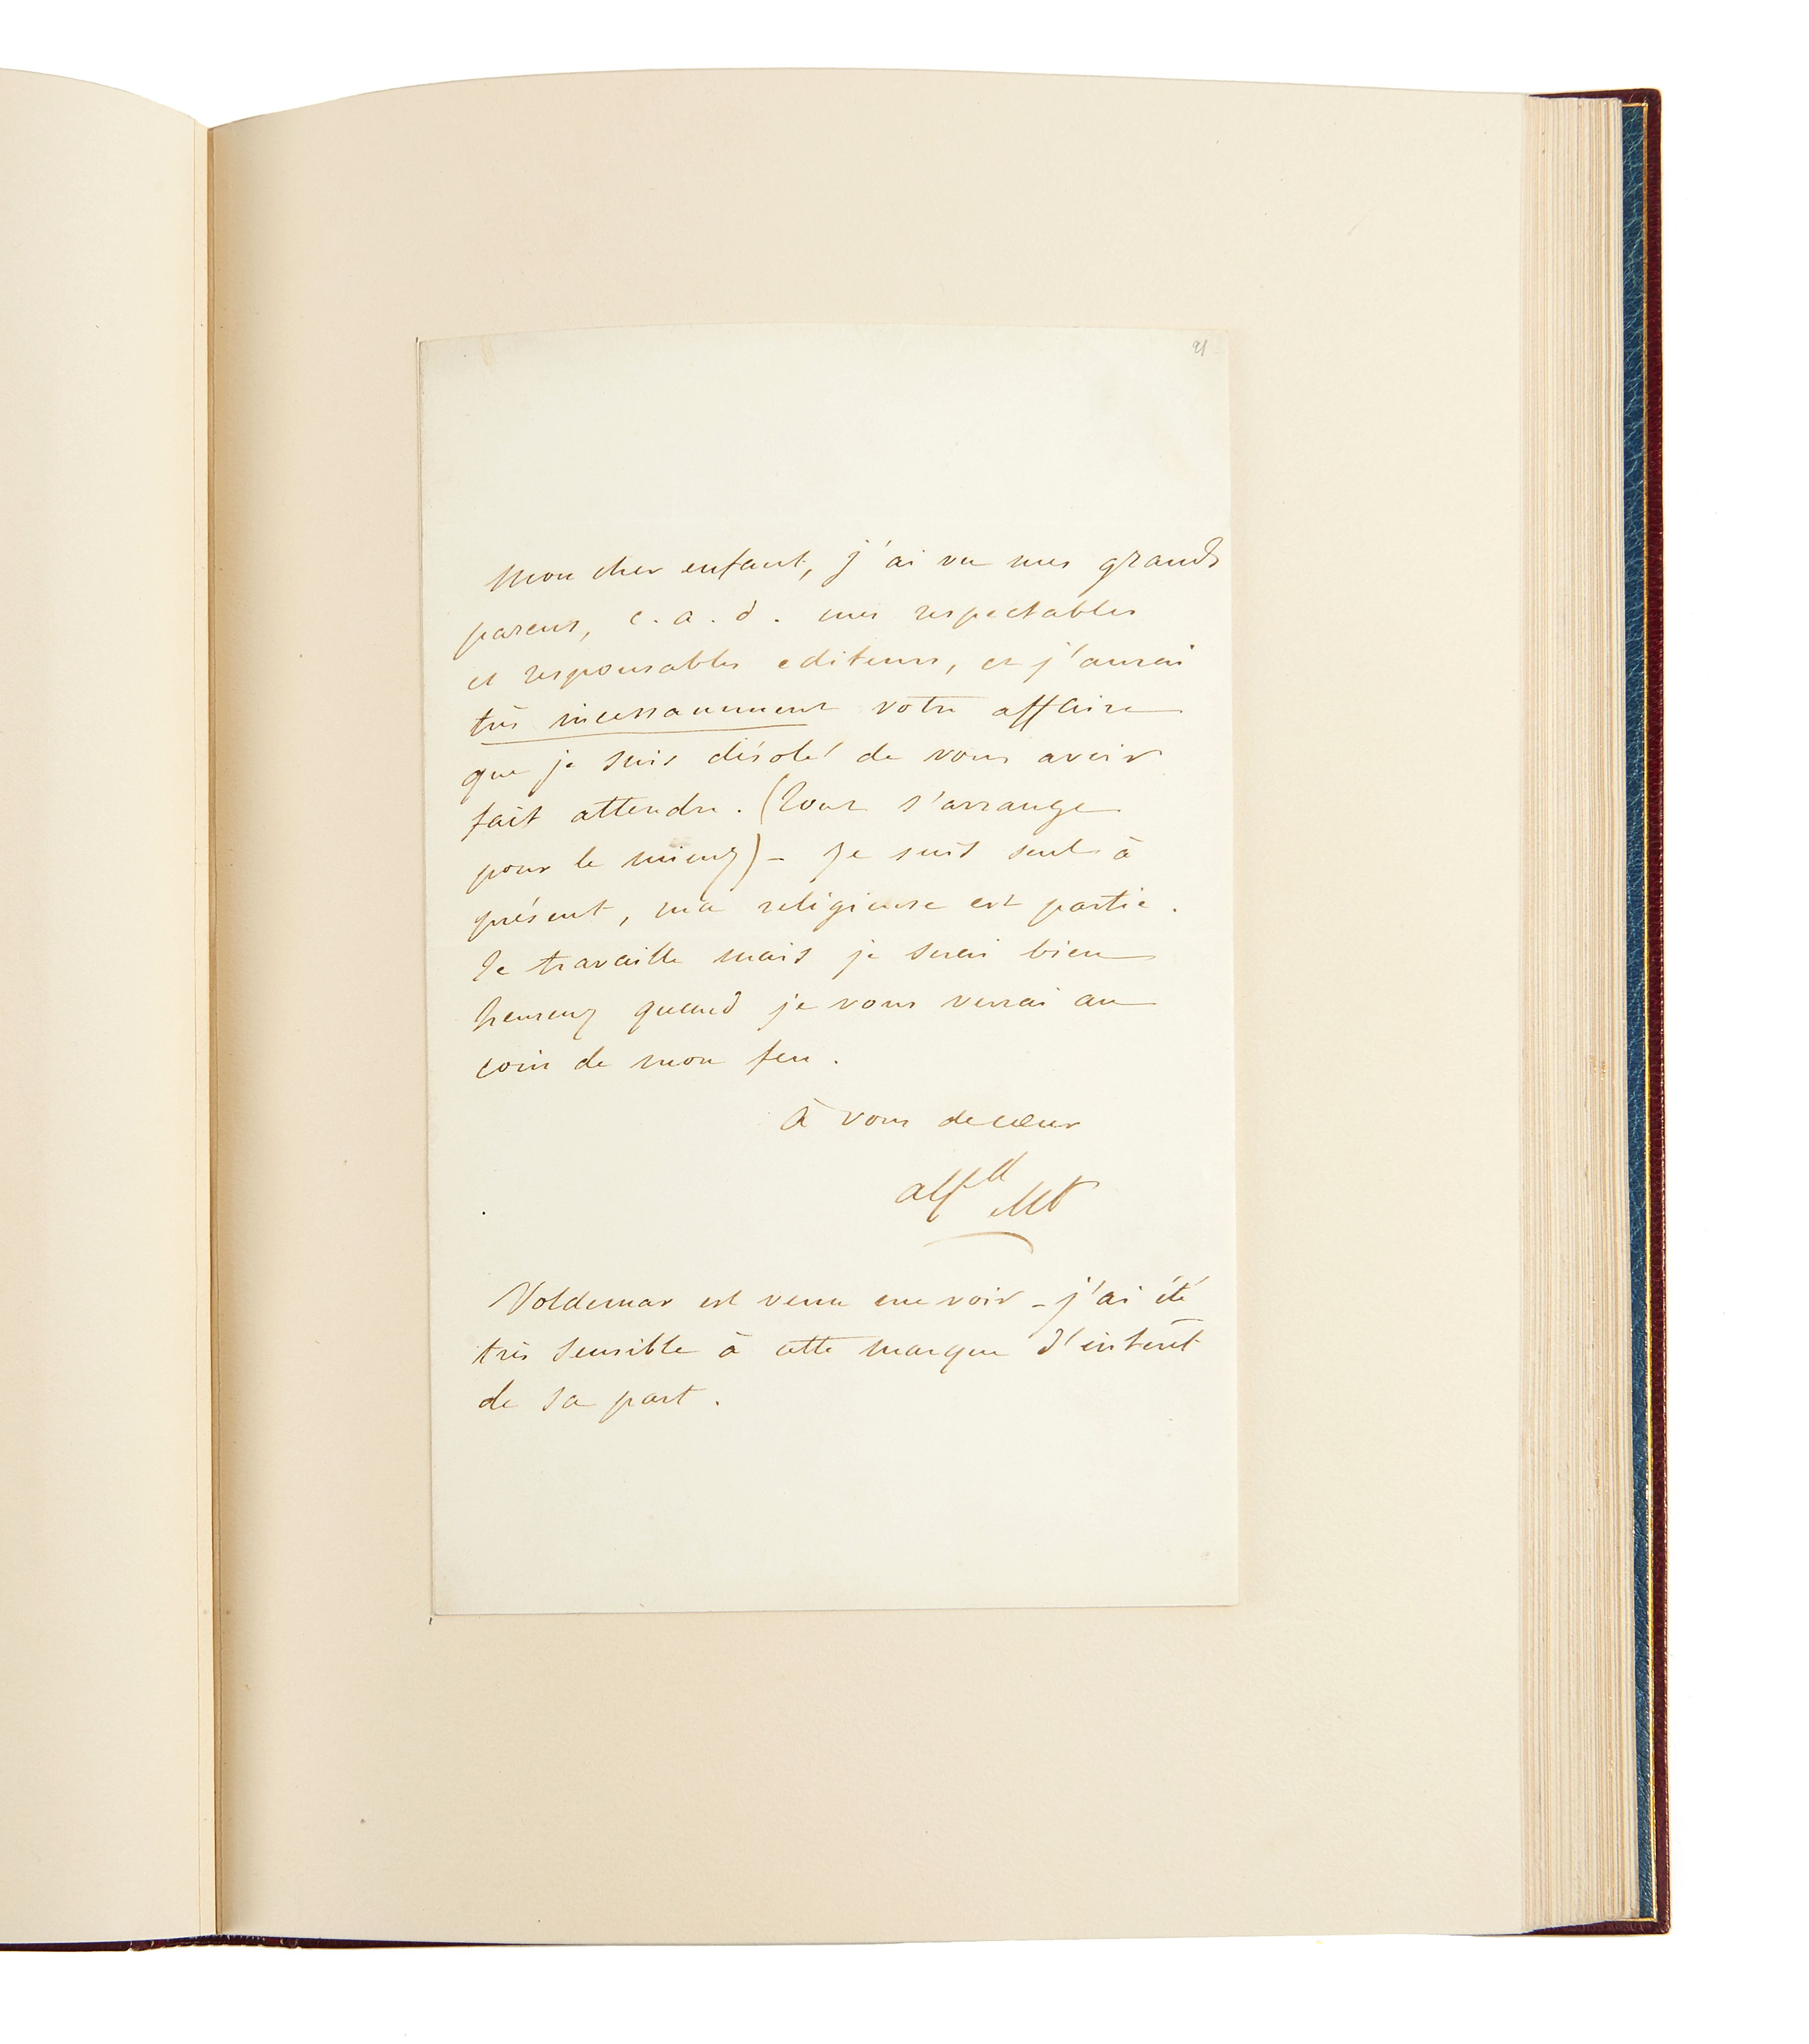 21
Mon cher enfant, j'ai vu mes grands
parens, c. a. d. mes respectables
et responsables editeurs, et j'aurai
très incessamment votre affaire
que je suis désolé de vous avoir
fait attendre. (Tout s'arrange
pour le mieux) - Je suis seul à
présent, ma religieuse est partie.
Je travaille mais je serai bien
heureux quand je vous verrai au
coin de mon feu.
à vous de cœur
Alf^d Mt
Voldemar est venu me voir - j'ai été
très sensible à cette marque d'intérêt
de sa part.